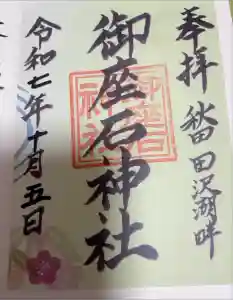 奉拝 秋田田沢湖畔
御座石神社
令和七年十月五日